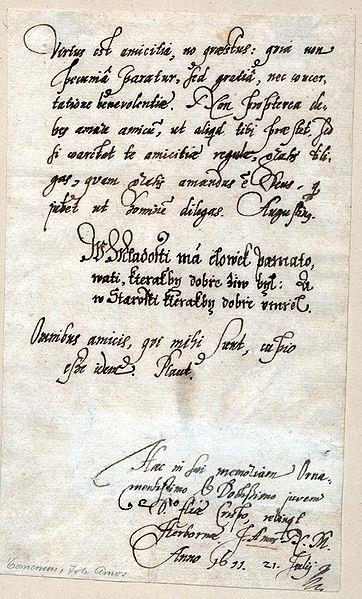 Virtus est amicitia, no quæstus: quia non
pecuniâ paratur, sed gratiâ, nec concer,
tatione benevolentiæ. Non propterea de,
bes amare amicũ, ut aliqd tibi præstet, sed
si veritat te amicitiæ regula, gratis dili,
gas, quam gratis amandus ẽ Deus, q
jubet ut hominẽ diligas. Augustin.
W Mladosti má człowek pamato,
wati, kterakby dobře žiw byl: A
w Starosti kterakby dobře vmřel.
Omnibus amicis, qui mihi sunt, cupio
esse idem. Plaut.
Hac in sui memoriam Orna,
mentissimo & Doctissimo juveni
relinqt
Herbornæ, J. Amos N. M.
Anno 1611. 21. July
Comenius, Joh. Amos